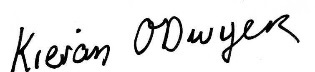 Kieran ODwyer